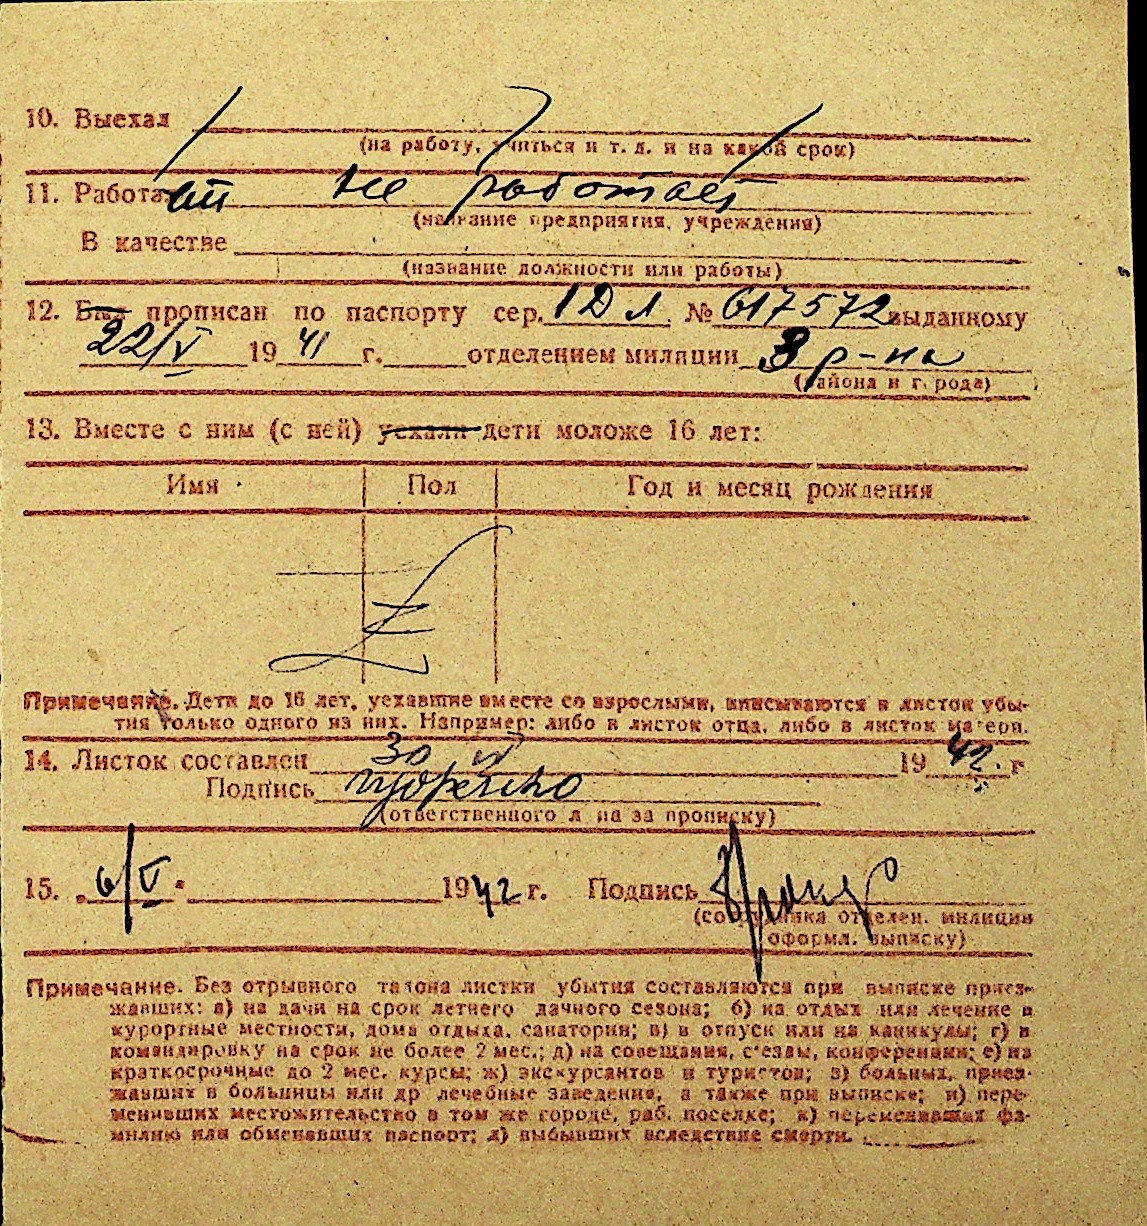 10. Выехал
(на работу, учиться и т. д. и на какой срок)
11. Работает не работает
(название предприятия, учреждения)
В качестве
(название должности или работы)
12. Был прописан по паспорту сер. 1 Д Л № 617572 выданному
22/V 19 41 г. отделением милиции 3 р-на
(района и города)
13. Вместе с ним (с ней) уехали дети моложе 16 лет:
Имя Пол Год и месяц рождения
Z
Примечание. Дети до 16 лет, уехавшие вместе со взрослыми, вписываются в листок убы-
тия только одного из них. Например: либо в листок отца, либо в листок матери.
14. Листок составлен 30 19 42. г
Подпись
(ответственного лица за прописку)
15. „6/V" 1942 г. Подпись
(сотрудника отделен. милиции
оформл. выписку)
Примечание. Без отрывного талона листки убытия составляются при выписке приез-
жавших: а) на дачи на срок летнего дачного сезона; б) на отдых или лечение в
курортные местности, дома отдыха, санатории; в) в отпуск или на каникулы; г) в
командировку на срок не более 2 мес.; д) на совещания, с'езды, конференции; е) на
краткосрочные до 2 мес. курсы; ж) экскурсантов и туристов; з) больных, приез-
жавших в больницы или др лечебные заведения, а также при выписке; и) пере-
менивших местожительство в том же городе, раб. поселке; к) переменивших фа-
милию или обменявших паспорт; л) выбывших вследствие смерти.